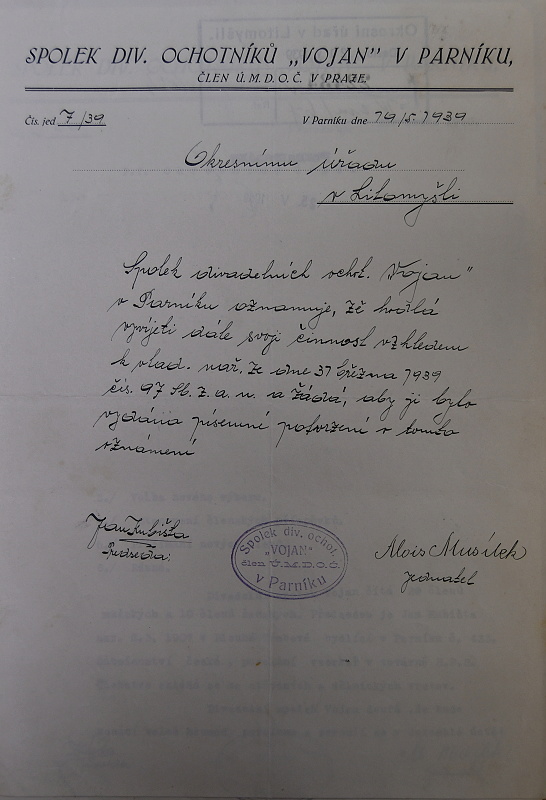 SPOLEK DIV. OCHOTNÍKŮ „VOJAN" V PARNÍKU,
ČLEN Ú. M. D. O. Č. V PRAZE.
Čís. jed 7/39
V Parníku dne 19/5. 1939
Okresnímu úřadu
v Litomyšli
Spolek divadelních ochot. „Vojan"
v Parníku oznamuje, že hodlá
vyvíjeti dále svoji činnost vzhledem
k vlad. nař. ze dne 31 března 1939
čís. 97 Sb. z. a. n. a žádá, aby ji bylo
vydána písemní potvrzení o tomto
oznámení
Jan Kubišta
Předseda:
Spolek div. ochot.
„VOJAN"
člen Ú.M.D.O.Č.
v Parníku
Alois Musílek
jednatel